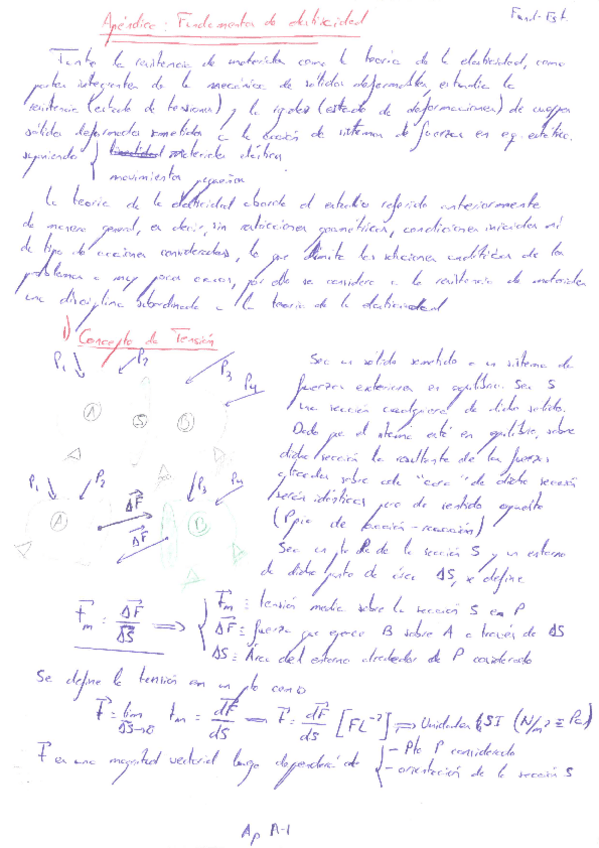 Fund-Est.
Apéndice: Fundamentos de elasticidad
Tanto la resistencia de materiales como la teoría de la elasticidad, como
partes integrantes de la mecánica de sólidos deformables, estudia la
resistencia (estado de tensiones) y la rigidez (estado de deformaciones) de cuerpos
sólidos deformados sometidos a la acción de sistemas de fuerzas en eq. estático.
suponiendo materiales elásticos
movimientos pequeños
La teoría de la elasticidad aborda el estudio referido anteriormente
de manera general, es decir, sin restricciones geométricas, condiciones iniciales ni
de tipo de acciones consideradas, lo que limita las soluciones analíticas de los
problemas a muy pocos casos, por ello se considera a la resistencia de materiales
una disciplina subordinada a la teoría de la elasticidad
1) Concepto de Tensión
P1 P2 P3 P4
A S B
Sea un sólido sometido a un sistema de
fuerzas exteriores en equilibrio. Sea S
una sección cualquiera de dicho sólido.
Dado que el sistema está en equilibrio, sobre
dicha sección la resultante de las fuerzas
ejercidas sobre cada "cara" de dicha sección
serán idénticas pero de sentido opuesto
(Ppio de acción-reacción)
P1 P2 ΔF P3 P4
A ΔF B
Sea un pto P de la sección S y un entorno
de dicho punto de área ΔS, se define
t⃗m = ΔF⃗/ΔS ⟹ t⃗m ≡ tensión media sobre la sección S en P
ΔF⃗ ≡ fuerza que ejerce B sobre A a través de ΔS
ΔS ≡ Área del entorno alrededor de P considerado
Se define la tensión en un pto como
t⃗ = lim ΔS→0 tm = dF⃗/dS → t⃗ = dF⃗/dS [FL⁻²] ⟹ Unidades SI (N/m² ≡ Pa)
t⃗ es una magnitud vectorial luego dependerá de - Pto P considerado
- orientación de la sección S
Ap A-1